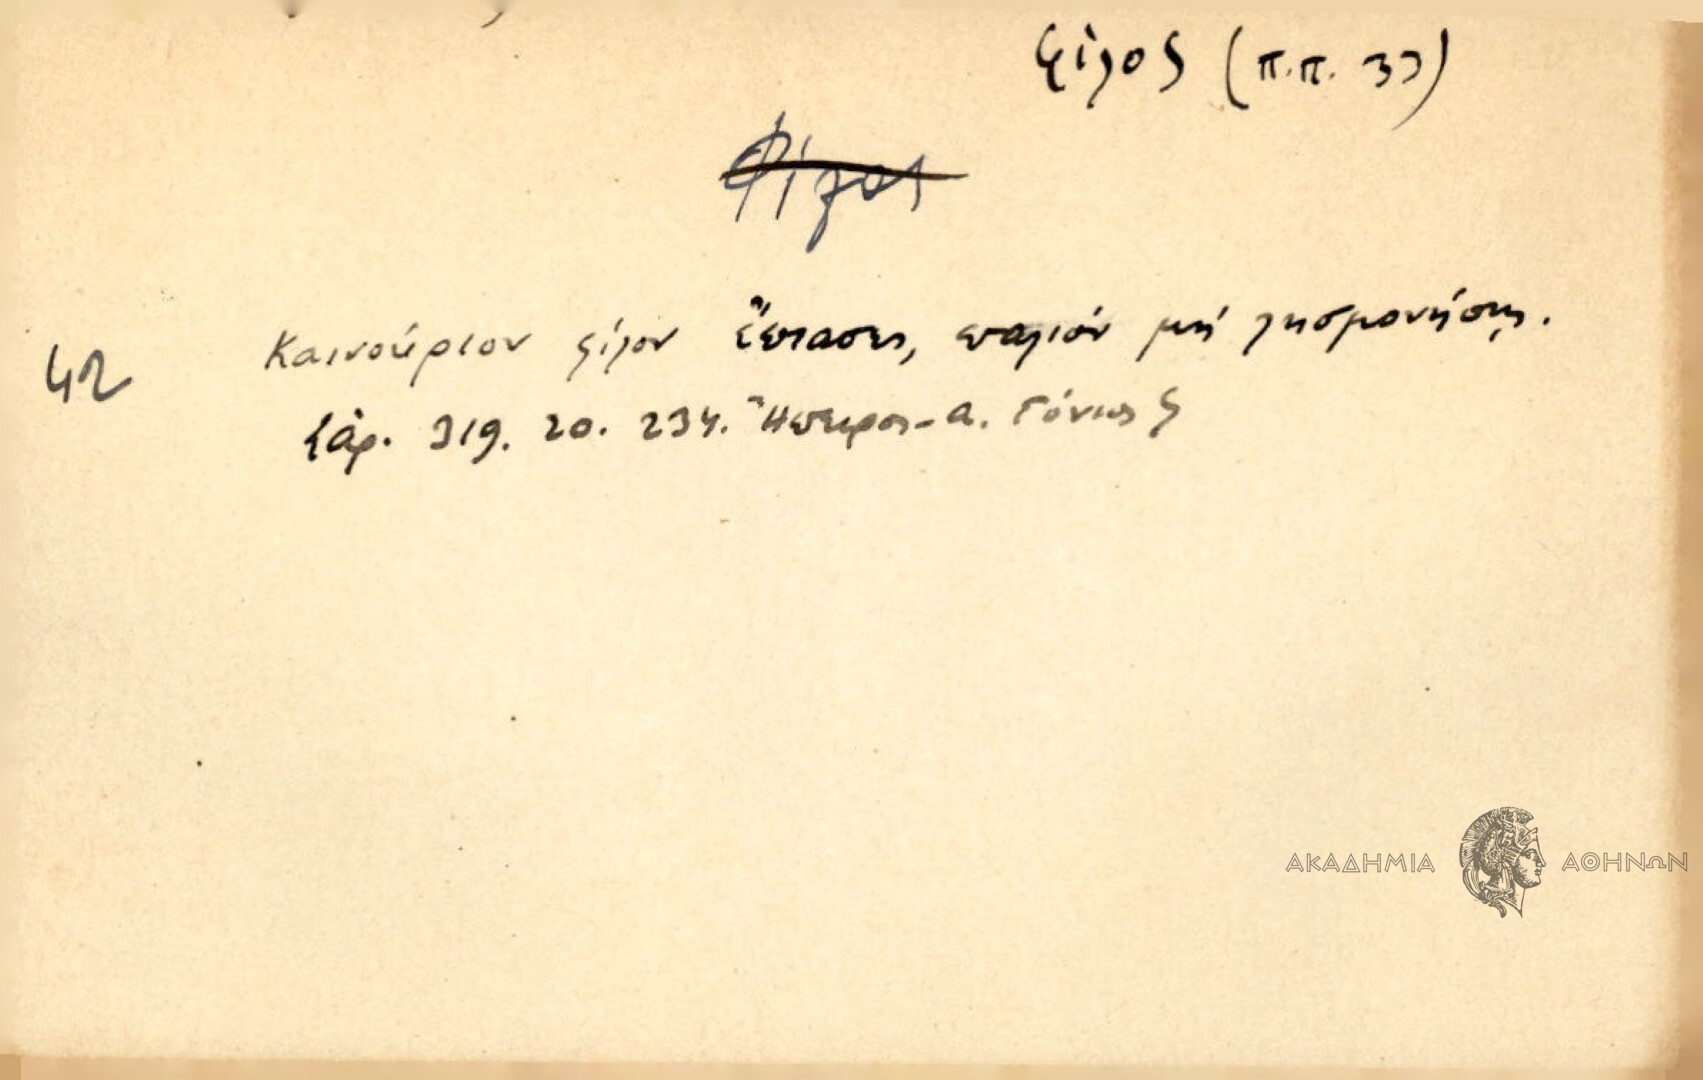 φίλος (π.π. 37)
Φίλος
42
Καινούριον φίλον ἔπιασες, παλιόν μή λησμονήσῃς.
Λ.ἀρ. 319. 20. 234. Ἤπειρος - Α. Γόνιος
ΑΚΑΔΗΜΙΑ ΑΘΗΝΩΝ